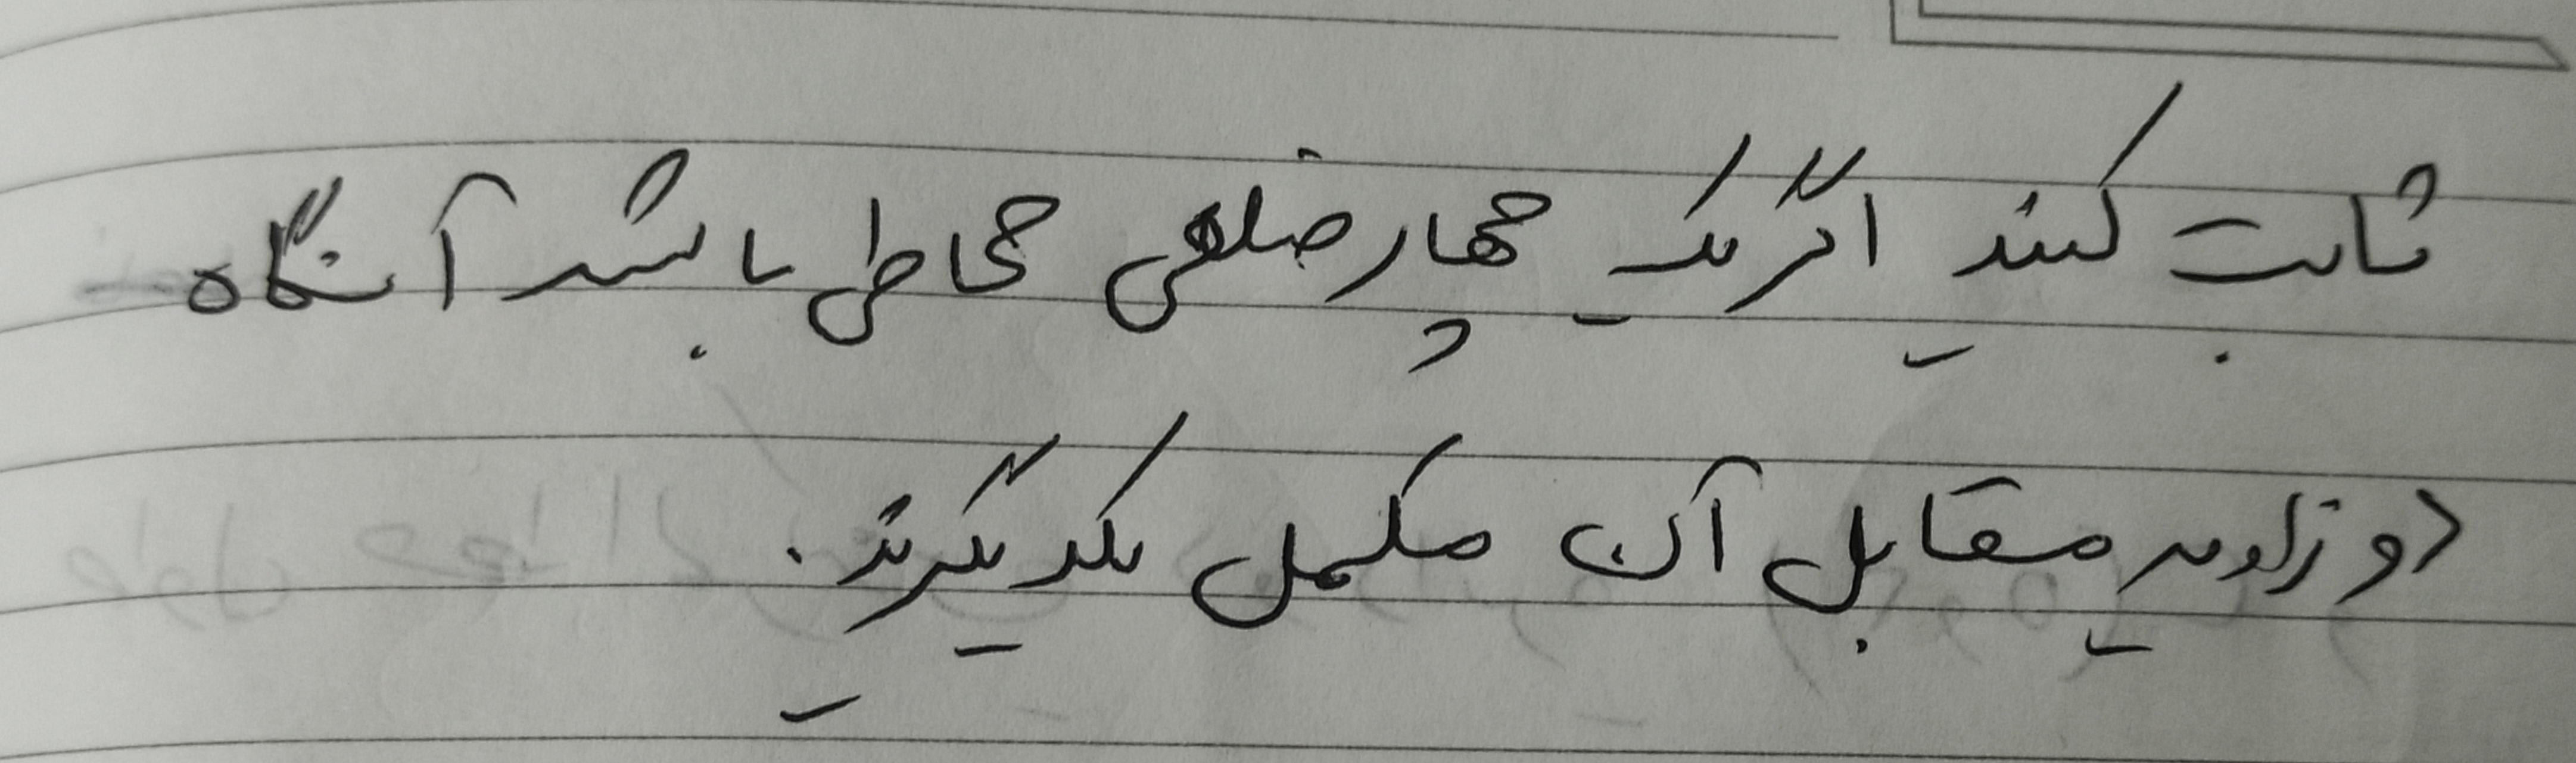 ثابت کنید اگر یک چهارضلعی محاطی باشد آنگاه
دو زاویه مقابل آن مکمل یکدیگرند.